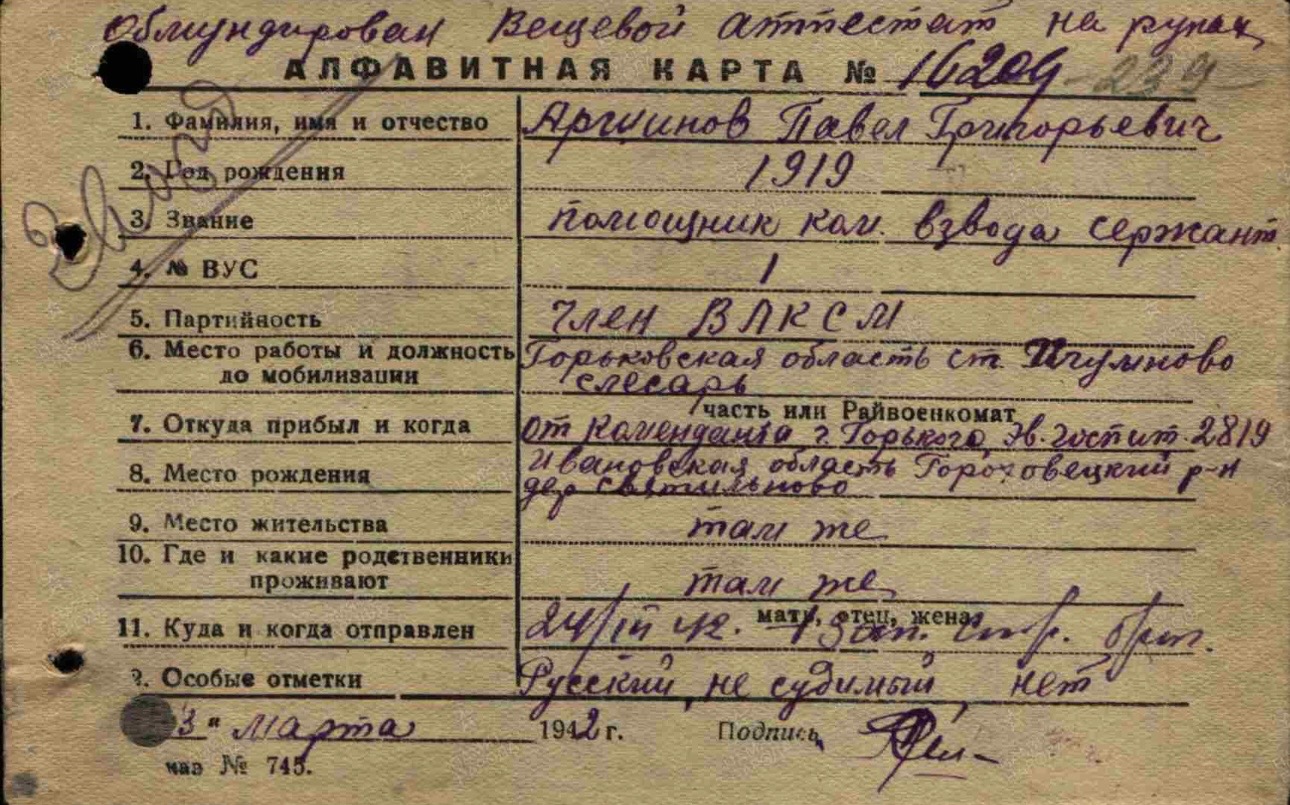 Обмундирован Вещевой аттестат на руках
АЛФАВИТНАЯ КАРТА № 16209 -239
1. Фамилия, имя и отчество Аршинов Павел Григорьевич
2. Год рождения 1919
3. Звание помощник ком. взвода сержант
4. № ВУС 1
5. Партийность член ВЛКСМ
6. Место работы и должность до мобилизации Горьковская область ст. Игумново
слесарь
часть или Райвоенкомат
7. Откуда прибыл и когда от Коменданта г. Горького, Эв. госпит. 2819
8. Место рождения Ивановская область Гороховецкий р-н
дер Святильново
9. Место жительства там же
10. Где и какие родственники проживают там же
мать, отец, жена
11. Куда и когда отправлен 24/III 42. 1 Зап. стр. бриг.
2. Особые отметки Русский, не судимый нет
3" марта 1942 г. Подпись
каз № 745.